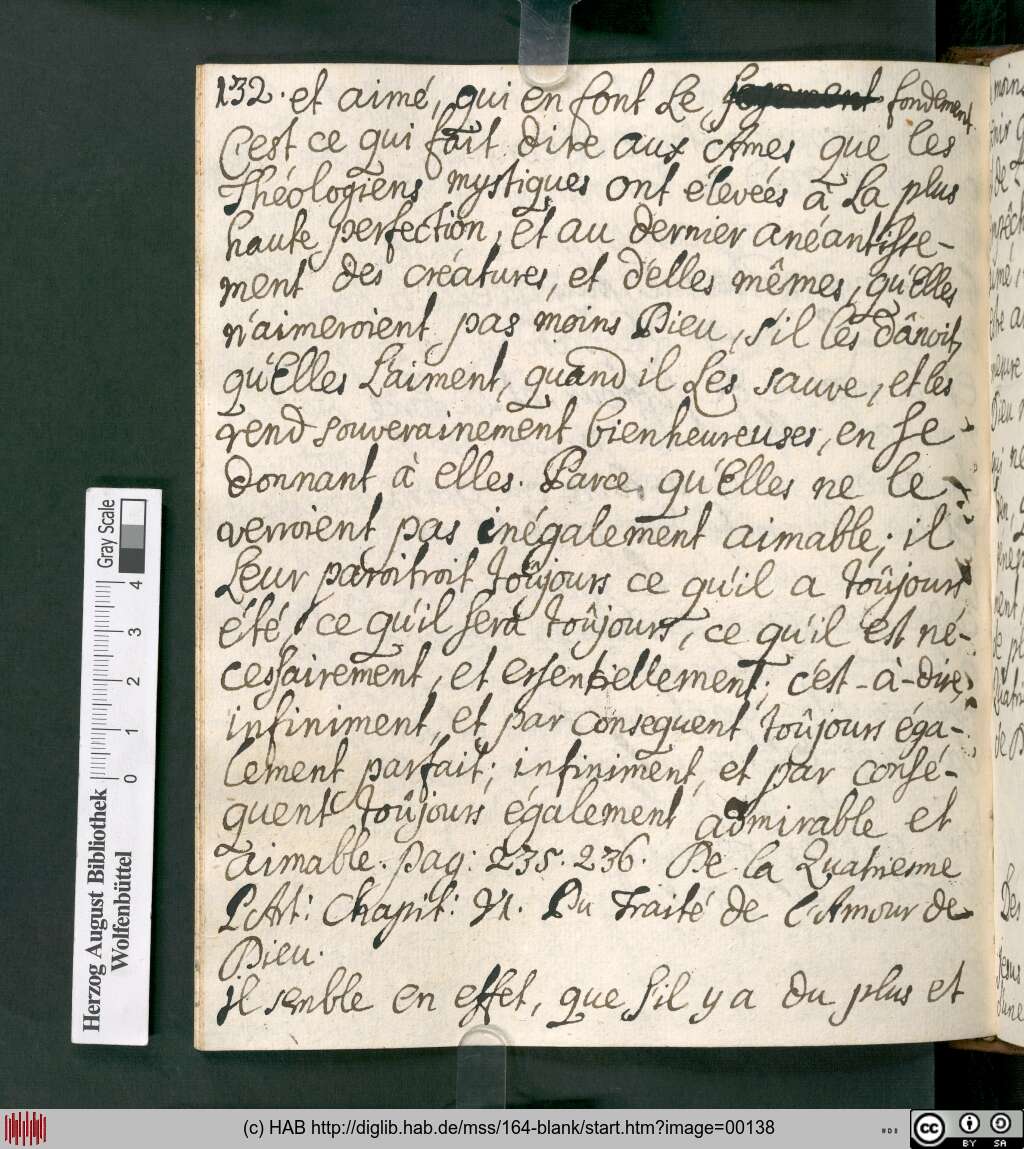 132. et aimé, qui en font Le fondement
C'est ce qui fait dire aux Ames que les
Théologiens mystiques ont élevées à La plus
haute perfection, et au dernier anéantisse-
ment des créatures, et d'elles mêmes, qu'Elles
n'aimeroient pas moins Dieu, s'il les dânoit,
qu'Elles L'aiment, quand il Les sauve, et les
rend souverainement bienheureuses, en se
donnant à elles. Parce qu'Elles ne le
verroient pas inégalement aimable; il
Leur paroitroit toûjours ce qu'il a toûjours
été, ce qu'il sera toûjours, ce qu'il est né-
cessairement, et essentiellement; c'est-à-dire,
infiniment, et par consequent toûjours éga-
lement parfait; infiniment, et par consé-
quent toûjours également admirable et
aimable. pag: 235. 236. De la Quatriesme
Part: Chapit: VI. Du Traité de l'Amour de
Dieu.
il semble en effet, que s'il y a du plus et
Gray Scale
0 1 2 3 4
Herzog August Bibliothek
Wolfenbüttel
(c) HAB http://diglib.hab.de/mss/164-blank/start.htm?image=00138
CC BY SA